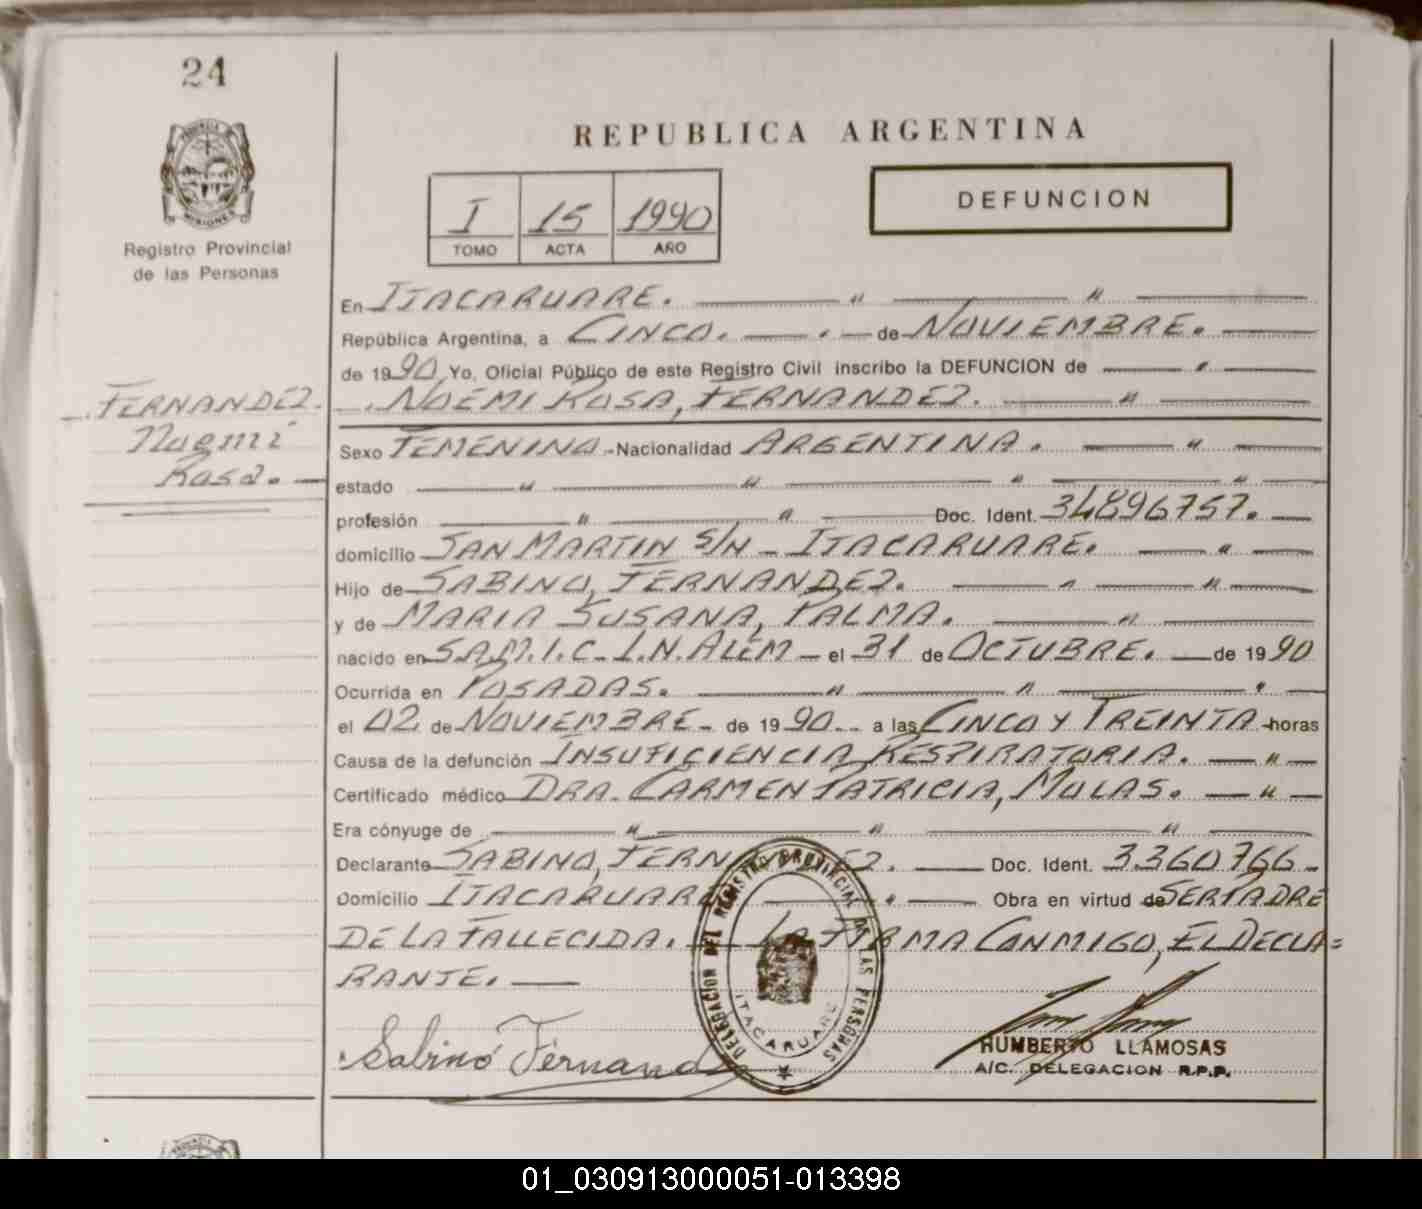 24
PROVINCIA DE MISIONES
Registro Provincial
de las Personas
REPUBLICA ARGENTINA
I 15 1990
TOMO ACTA AÑO
DEFUNCION
En ITACARUARE. — " — " —
República Argentina, a CINCO. — . — de NOVIEMBRE. —
de 1990, Yo, Oficial Público de este Registro Civil inscribo la DEFUNCION de — " —
FERNANDEZ.
Noemí
Rosa. —
NOEMI ROSA, FERNANDEZ. — " —
Sexo FEMENINO.-Nacionalidad ARGENTINA. — " —
estado — " — " — " — " —
profesión — " — " — Doc. Ident. 34896757. —
domicilio SAN MARTIN S/N - ITACARUARE. — " —
Hijo de SABINO, FERNANDEZ. — " — " —
y de MARIA SUSANA, PALMA. — " —
nacido en S.A.M.I.C. - L.N. ALEM — el 31 de OCTUBRE. — de 1990
Ocurrida en POSADAS. — " — " — " —
el 02 de NOVIEMBRE - de 1990.- a las CINCO Y TREINTA - horas
Causa de la defunción INSUFICIENCIA RESPIRATORIA. — " —
Certificado médico DRA. CARMEN PATRICIA, MULAS. — " —
Era cónyuge de — " — " — " —
Declarante SABINO, FERNANDEZ. — Doc. Ident. 3360766 -
Domicilio ITACARUARE — " — Obra en virtud de SER PADRE
DE LA FALLECIDA. — LA FIRMA CONMIGO, EL DECLA=
RANTE. —
Sabino Fernand
DELEGACION DEL REGISTRO PROVINCIAL DE LAS PERSONAS
ITACARUARE
HUMBERTO LLAMOSAS
A/C. DELEGACION R.P.P.
01_030913000051-013398